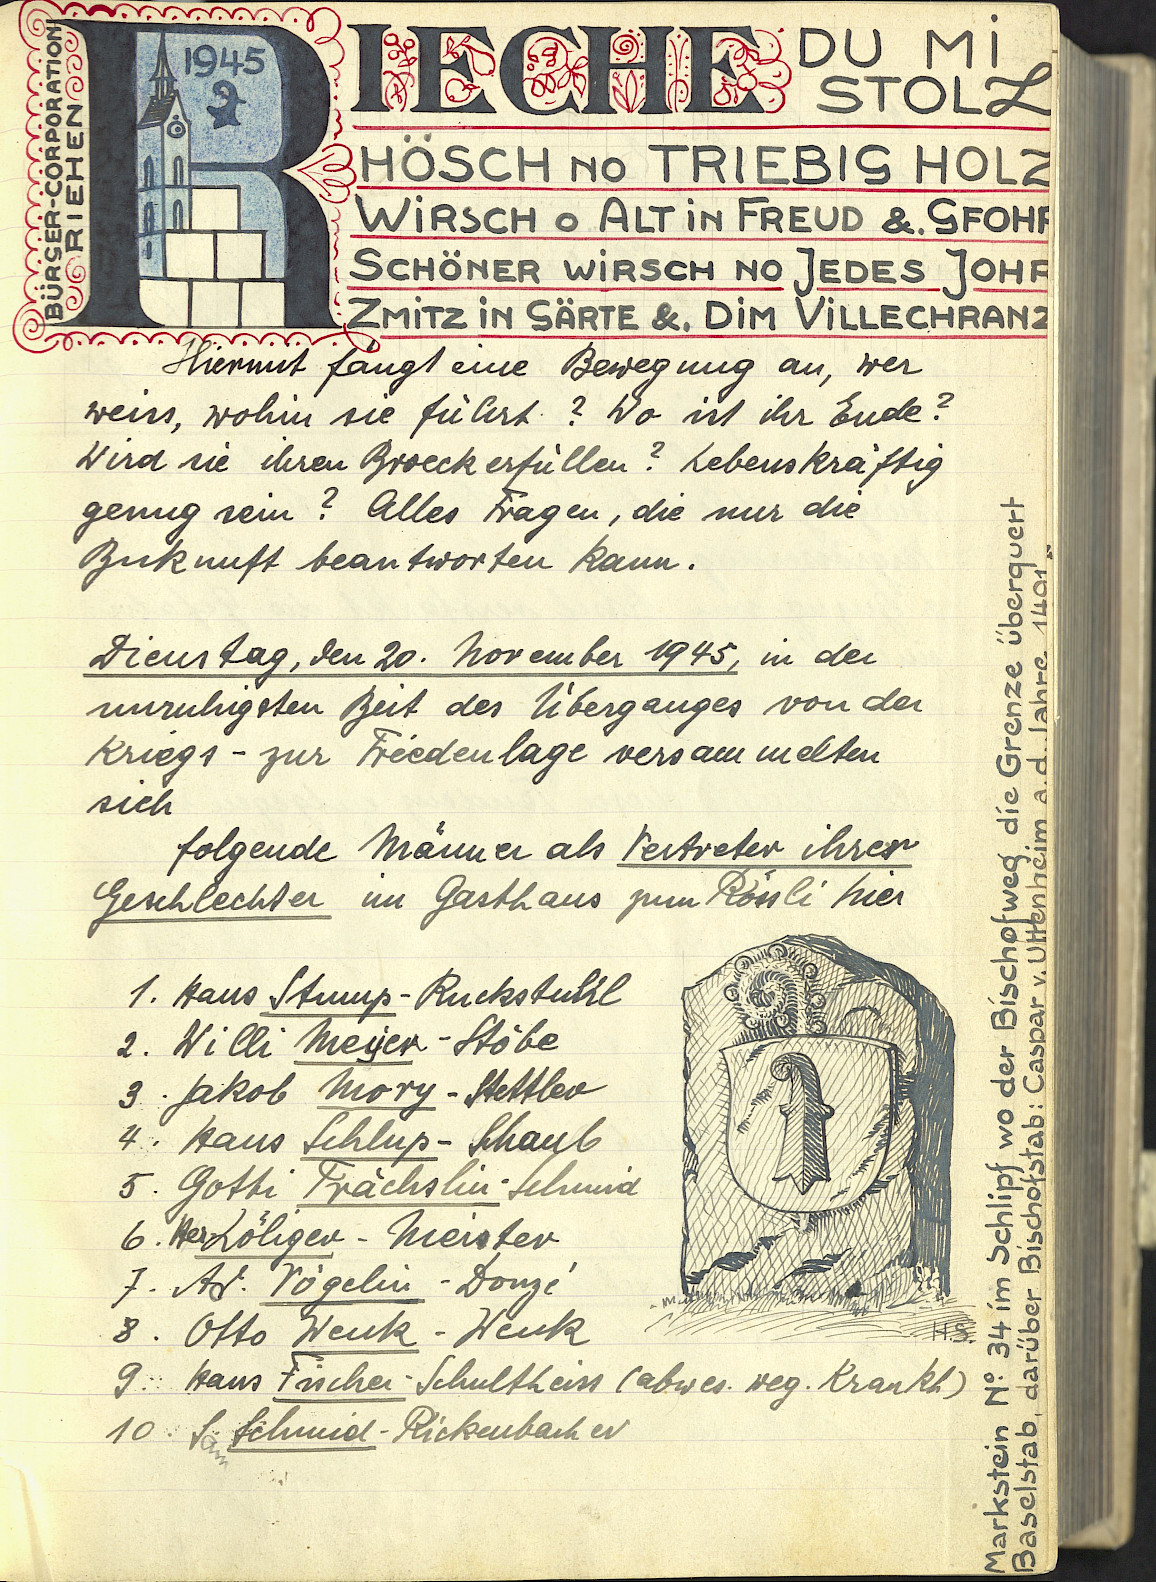 BÜRGER-CORPORATION
RIEHEN
1945
RIECHE DU MI
STOLZ
HÖSCH NO TRIEBIG HOLZ
WIRSCH O ALT IN FREUD &. GFOHR
SCHÖNER WIRSCH NO JEDES JOHR
ZMITZ IN GÄRTE &. DIM VILLECHRANZ
Hiermit fängt eine Bewegung an, wer
weiss, wohin sie führt? Wo ist ihr Ende?
Wird sie ihren Zweck erfüllen? Lebenskräftig
genug sein? Alles Fragen, die nur die
Zukunft beantworten kann.
Dienstag, den 20. November 1945, in der
unruhigsten Zeit des Überganges von der
Kriegs- zur Friedenlage versammelten
sich
folgende Männer als Vertreter ihrer
Geschlechter im Gasthaus zum Rössli hier
1. Hans Stump-Ruckstuhl
2. Willi Meyer-Stöbe
3. Jakob Mory-Stettler
4. Hans Schlup-Schaub
5. Gotti Trächslin-Schmid
6. Löliger-Meister
7. Ad. Vögelin-Donzé
8. Otto Wenk-Wenk
9. Hans Fischer-Schultheiss (abwes. weg. Krankh)
10 Sam Schmid-Rickenbacher
H.S.
Markstein No 34 im Schlipf wo der Bischofweg die Grenze überquert
Baselstab, darüber Bischofstab: Caspar v. Uttenheim a.d. Jahre 1491"